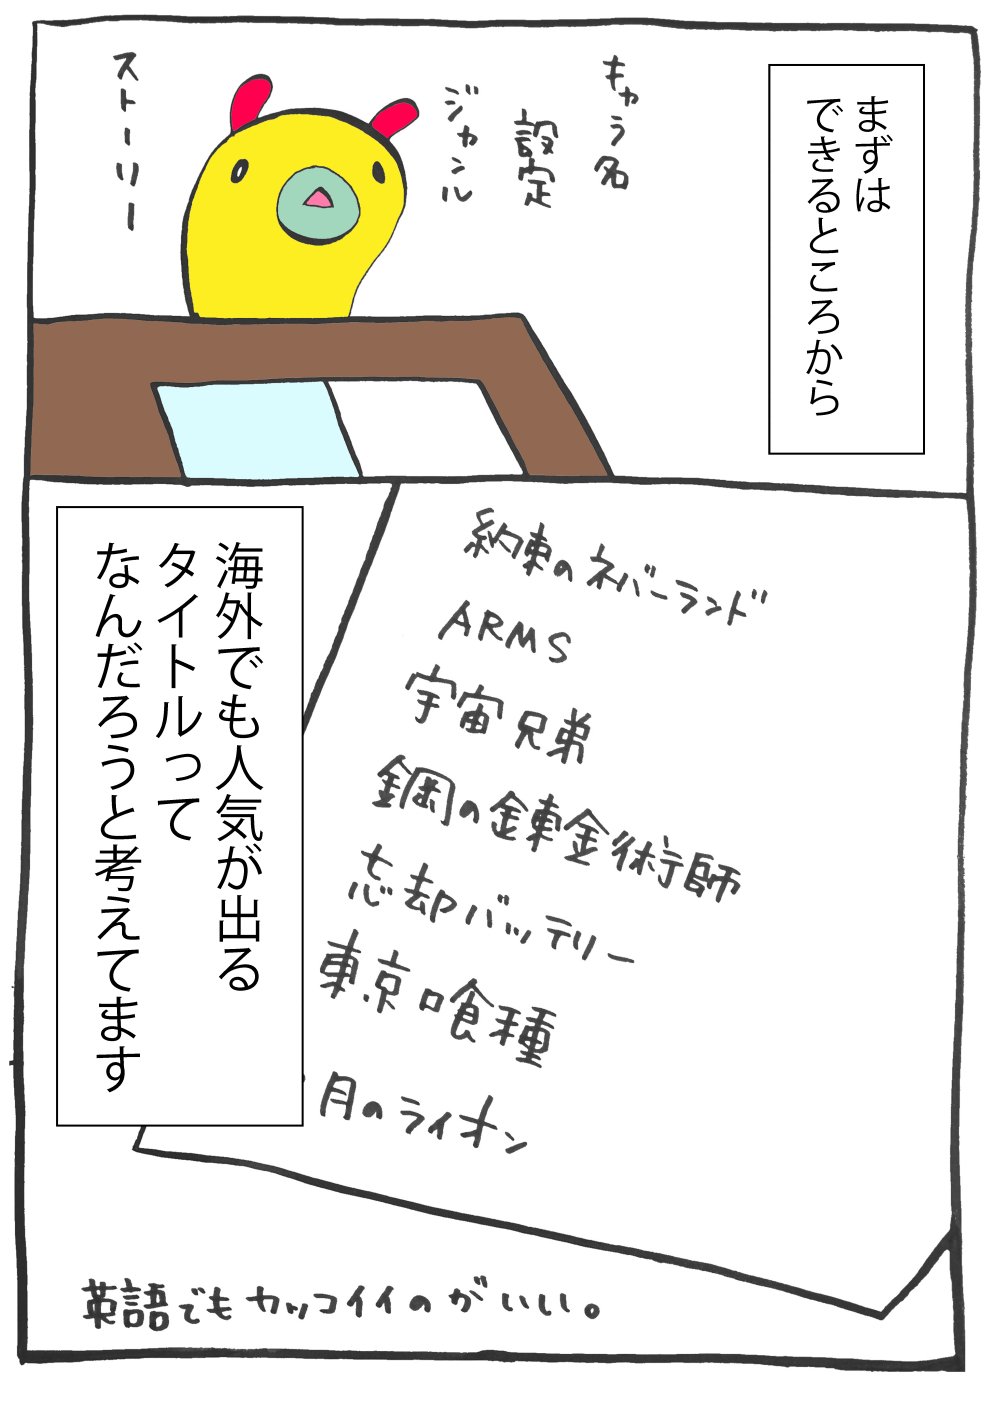 まずは
できるところから
キャラ名
設定
ジャンル
ストーリー
約束のネバーランド
ARMS
宇宙兄弟
鋼の錬金術師
忘却バッテリー
東京喰種
月のライオン
海外でも人気が出る
タイトルって
なんだろうと考えてます
英語でもカッコイイのがいい。